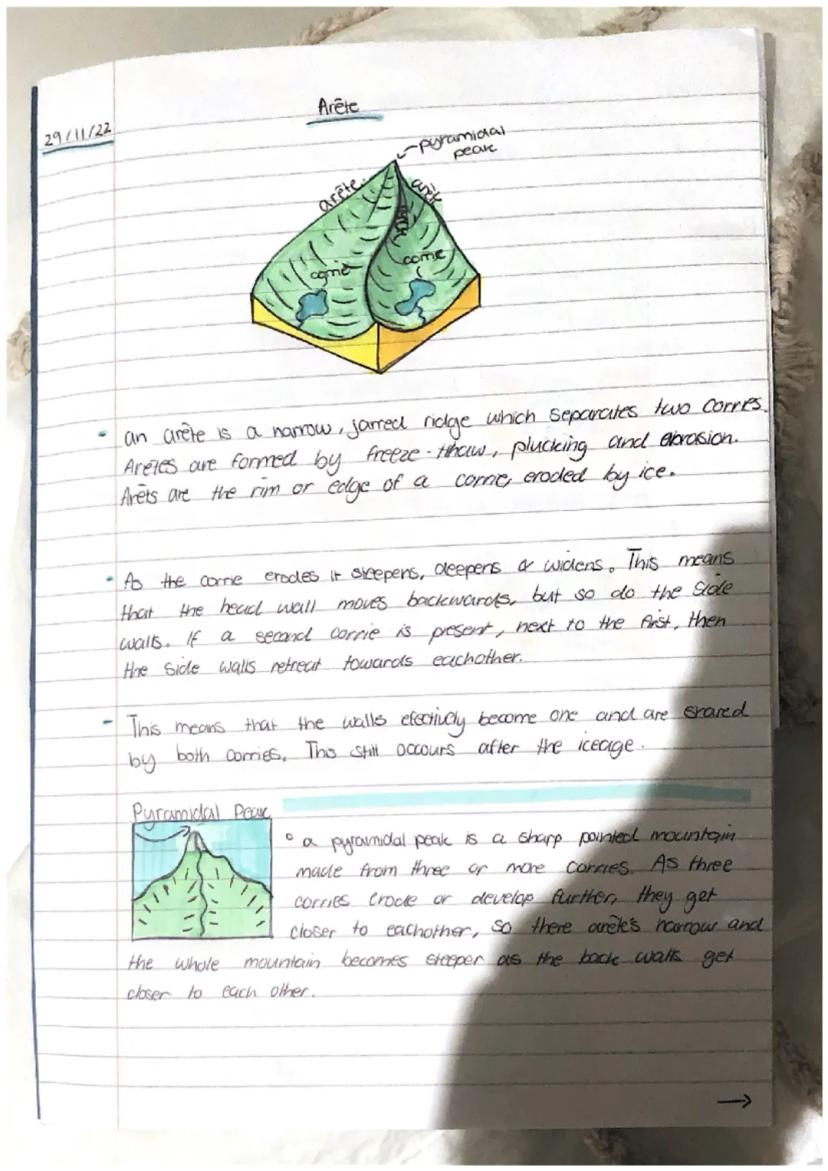 Arête
29/11/22
pyramidal
peak
arête
arête
arête
corrie
corrie
- an arête is a narrow, jarred ridge which separates two corries.
Arêtes are formed by freeze-thaw, plucking and abrasion.
Arêts are the rim or edge of a corrie, eroded by ice.
- As the corrie erodes it steepens, deepens & widens. This means
that the head wall moves backwards, but so do the side
walls. If a second corrie is present, next to the first, then
the side walls retreat towards eachother.
- This means that the walls efectively become one and are shared
by both corries. This still occours after the iceage.
Pyramidal Peak
° a pyramidal peak is a sharp pointed mountain
made from three or more corries. As three
corries erode or develop further, they get
closer to eachother, so there arête's narrow and
the whole mountain becomes steeper as the back walls get
closer to each other.
→